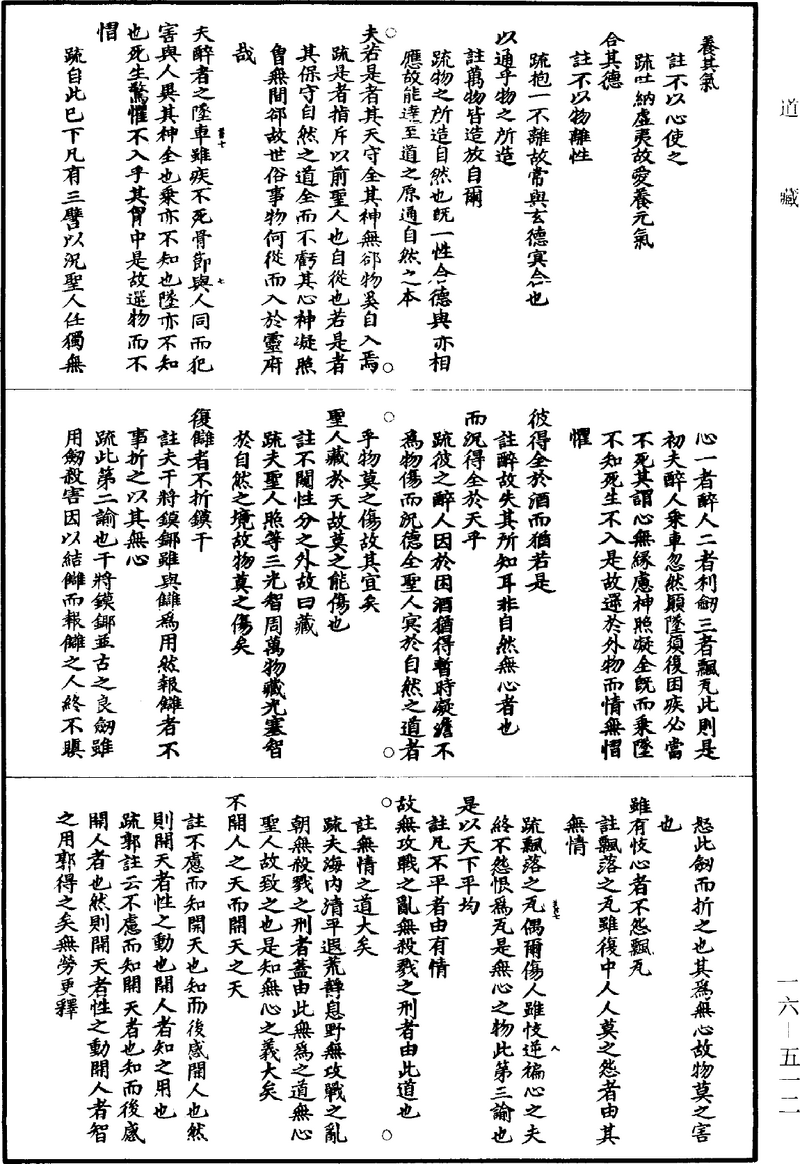 道藏
養其氣
註不以心使之
疏吐納虛夷故愛養元氣
合其德
註不以物離性
疏抱一不離故常與玄德冥合也
以通乎物之所造
註萬物皆造於自爾
疏物之所造自然也既一性合德與亦相
應故能達至道之原通自然之本
夫若是者其天守全其神無郤物奚自入焉
疏是者指斥以前聖人也自從也若是者
其保守自然之道全而不虧其心神凝照
曾無間郤故世俗事物何從而入於靈府
哉
夫醉者之墜車雖疾不死骨節與人同而犯
害與人異其神全也乘亦不知也墜亦不知
也死生驚懼不入乎其胷中是故遻物而不
慴
疏自此已下凡有三譬以況聖人任獨無
心一者醉人二者利劒三者飄瓦此則是
初夫醉人乘車忽然顛墜須復困疾必當
不死其謂心無緣慮神照凝全既而乘墜
不知死生不入是故遻於外物而情無慴
懼
彼得全於酒而猶若是
註醉故失其所知耳非自然無心者也
而況得全於天乎
疏彼之醉人因於困酒猶得暫時凝澹不
為物傷而況德全聖人冥於自然之道者
乎物莫之傷故其宜矣
聖人藏於天故莫之能傷也
註不闚性分之外故曰藏
疏夫聖人照等三光智周萬物藏光塞智
於自然之境故物莫之傷矣
復讎者不折鏌干
註夫干將鏌鎁雖與讎為用然報讎者不
事折之以其無心
疏此第二諭也干將鏌鎁並古之良劒雖
用劒殺害因以結讎而報讎之人終不瞋
怒此劒而折之也其為無心故物莫之害
也
雖有忮心者不怨飄瓦
註飄落之瓦雖復中人人莫之怨者由其
無情
疏飄落之瓦偶爾傷人雖忮逆褊心之夫
終不怨恨為瓦是無心之物此第三諭也
是以天下平均
註凡不平者由有情
故無攻戰之亂無殺戮之刑者由此道也
註無情之道大矣
疏夫海內清平遐荒靜息野無攻戰之亂
朝無殺戮之刑者蓋由此無為之道無心
聖人故致之也是知無心之義大矣
不開人之天而開天之天
註不慮而知開天也知而後感開人也然
則開天者性之動也開人者知之用也
疏郭註云不慮而知開天者也知而後感
開人者也然則開天者性之動開人者智
之用郭得之矣無勞更釋
一六—五一二